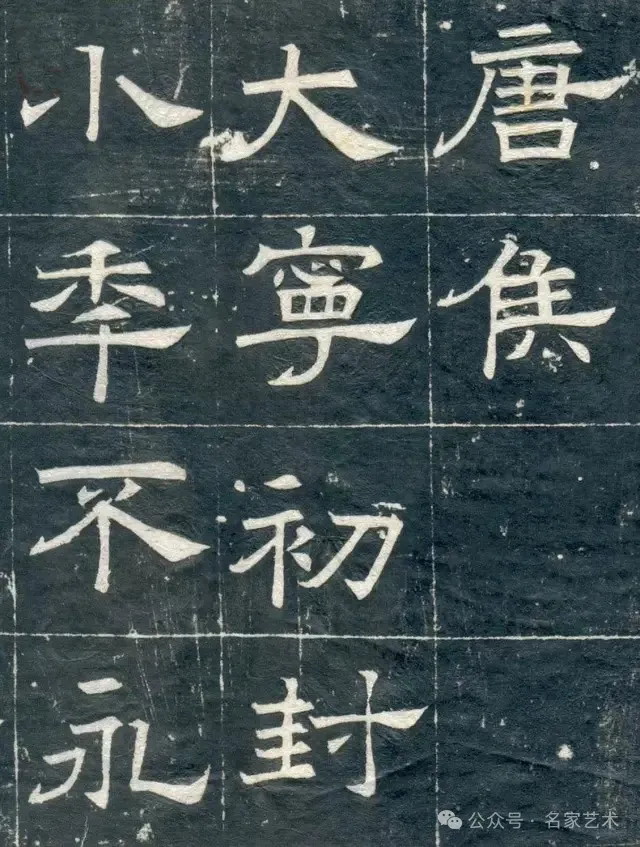 唐
大寧初封
小秊不永
公众号·名家艺术